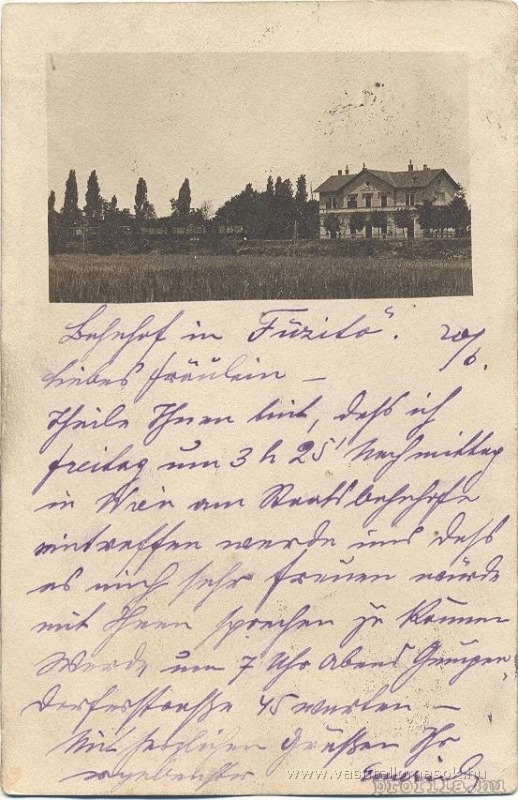 Bahnhof in "Füzitö". 20/6.
Liebes Fräulein –
Theile Ihnen mit, daß ich
Freitag um 3 h 25' Nachmittag
in Wien am Staatsbahnhofe
eintreffen werde und daß
es mich sehr freuen würde
mit Ihnen sprechen zu können
Werde um 7 Uhr Abend Gumpen-
dorferstraße 45 warten –
Mit herzlichen Grüßen Ihr
ergebenster
www.vasutallomasok.hu
profila.hu